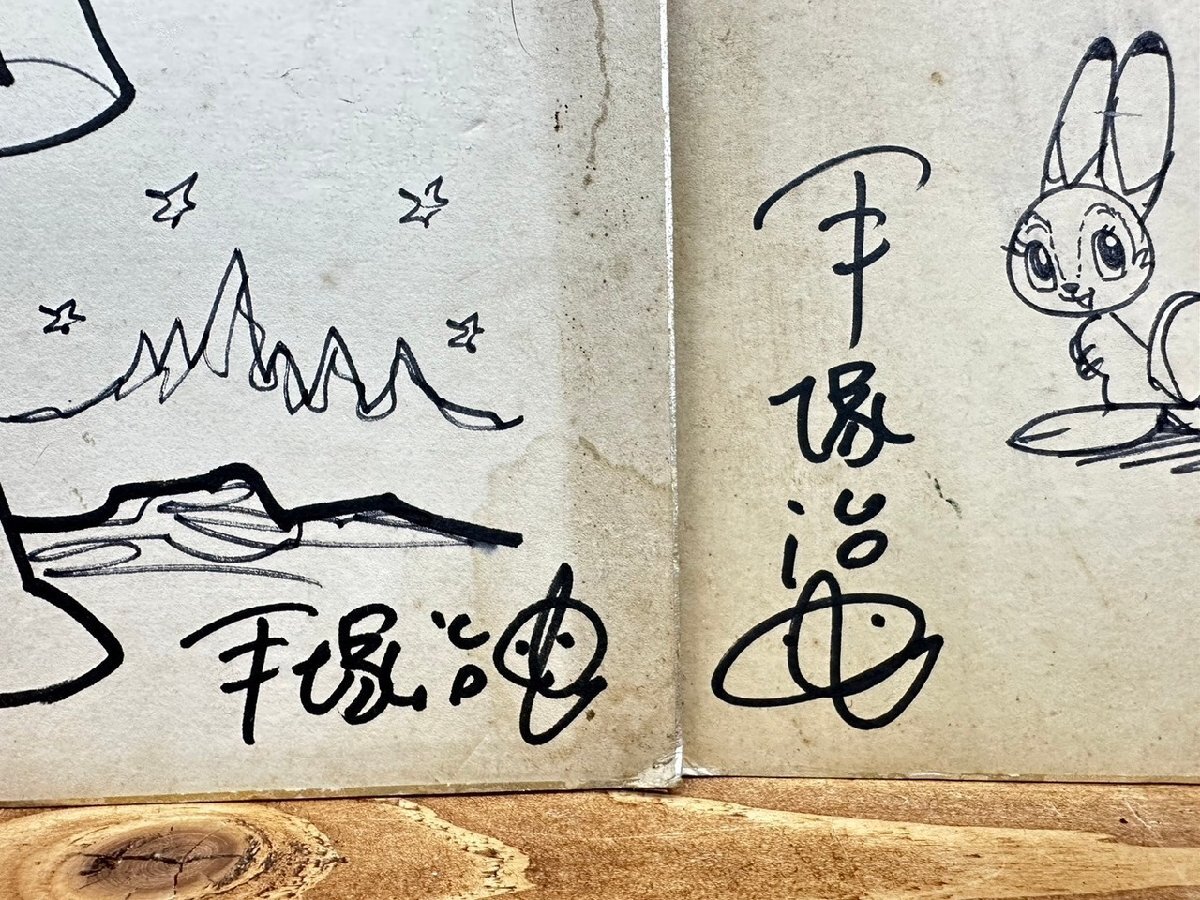 手塚治虫
手塚治虫